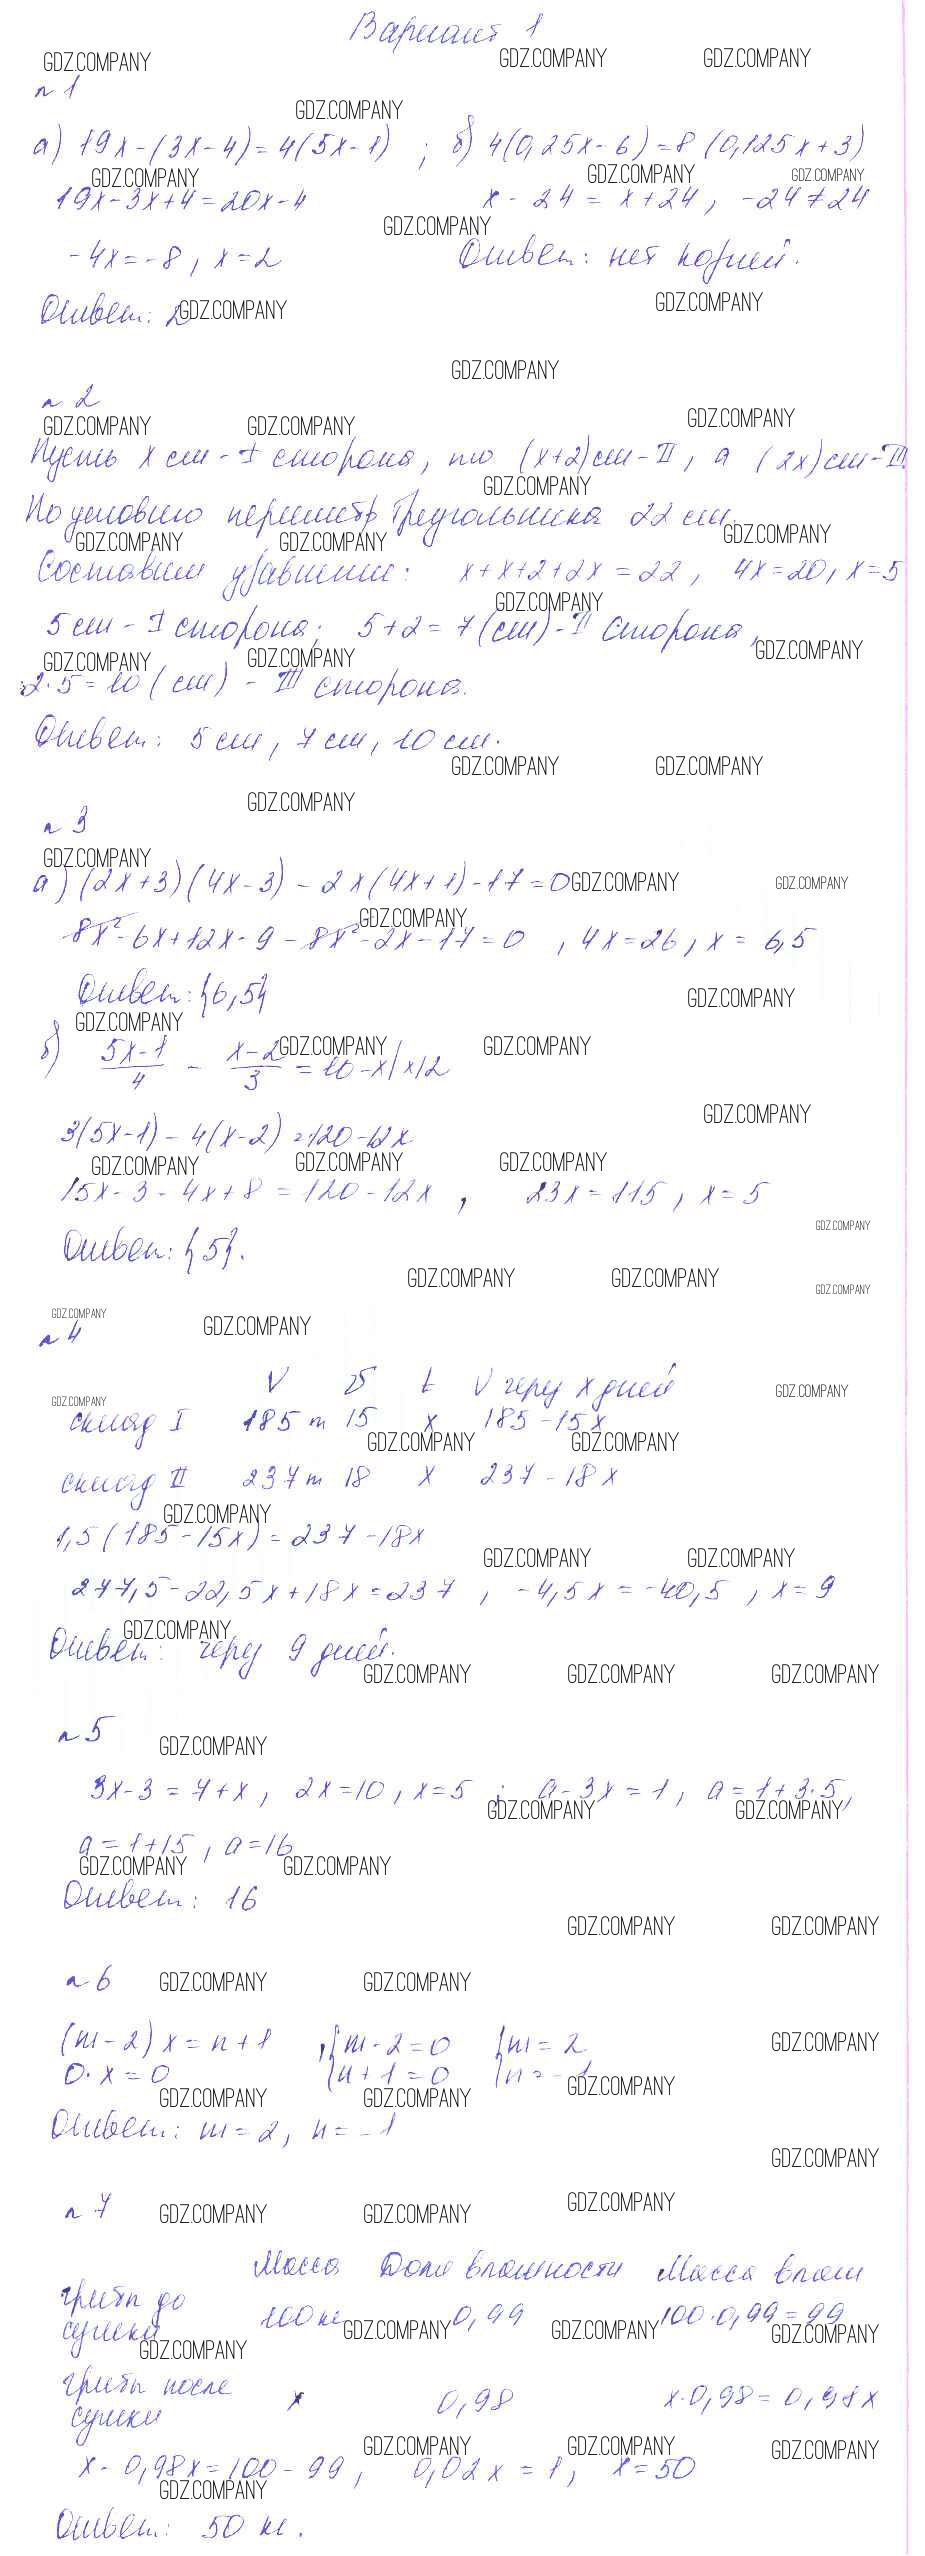 Вариант 1
GDZ.COMPANY GDZ.COMPANY GDZ.COMPANY
№1
GDZ.COMPANY
а) 19x-(3x-4)=4(5x-1) ; б) 4(0,25x-6)=8(0,125x+3)
GDZ.COMPANY GDZ.COMPANY GDZ.COMPANY
19x-3x+4=20x-4 x-24=x+24, -24≠24
GDZ.COMPANY
-4x=-8, x=2 Ответ: нет корней.
Ответ: 2 GDZ.COMPANY GDZ.COMPANY
GDZ.COMPANY
№2
GDZ.COMPANY GDZ.COMPANY GDZ.COMPANY
Пусть x см - I сторона, то (x+2)см-II, а (2x)см-III.
GDZ.COMPANY
По условию периметр треугольника 22 см.
GDZ.COMPANY GDZ.COMPANY GDZ.COMPANY
Составим уравнение: x+x+2+2x=22, 4x=20, x=5
GDZ.COMPANY
5см - I сторона; 5+2=7(см)-II сторона,
GDZ.COMPANY GDZ.COMPANY GDZ.COMPANY
2·5=10(см) - III сторона.
Ответ: 5см, 7см, 10см.
GDZ.COMPANY GDZ.COMPANY
GDZ.COMPANY
№3
GDZ.COMPANY
а) (2x+3)(4x-3)-2x(4x+1)-17=0 GDZ.COMPANY GDZ.COMPANY
GDZ.COMPANY
8x²-6x+12x-9-8x²-2x-17=0, 4x=26, x=6,5
Ответ: {6,5} GDZ.COMPANY
GDZ.COMPANY
б) (5x-1)/4 - (x-2)/3 = 10-x |x12 GDZ.COMPANY GDZ.COMPANY
GDZ.COMPANY
3(5x-1)-4(x-2)=120-12x
GDZ.COMPANY GDZ.COMPANY GDZ.COMPANY
15x-3-4x+8=120-12x, 23x=115, x=5
GDZ.COMPANY
Ответ: {5}.
GDZ.COMPANY GDZ.COMPANY GDZ.COMPANY
GDZ.COMPANY GDZ.COMPANY
№4
V v t V через x дней
GDZ.COMPANY GDZ.COMPANY
склад I 185т 15 x 185-15x
GDZ.COMPANY GDZ.COMPANY
склад II 237т 18 x 237-18x
GDZ.COMPANY
1,5(185-15x)=237-18x
GDZ.COMPANY GDZ.COMPANY
277,5-22,5x+18x=237, -4,5x=-40,5, x=9
GDZ.COMPANY
Ответ: через 9 дней.
GDZ.COMPANY GDZ.COMPANY GDZ.COMPANY
№5
GDZ.COMPANY
3x-3=7+x, 2x=10, x=5; a-3x=1, a=1+3·5,
GDZ.COMPANY GDZ.COMPANY
a=1+15, a=16
GDZ.COMPANY GDZ.COMPANY
Ответ: 16
GDZ.COMPANY GDZ.COMPANY
№6 GDZ.COMPANY GDZ.COMPANY
(m-2)x=n+1, {m-2=0 {m=2 GDZ.COMPANY
0·x=0 {n+1=0 {n=-1 GDZ.COMPANY
GDZ.COMPANY GDZ.COMPANY
Ответ: m=2, n=-1
GDZ.COMPANY
№7 GDZ.COMPANY GDZ.COMPANY GDZ.COMPANY
Масса Доля влажности Масса влаги
грибы до
сушки 100кг 0,99 100·0,99=99
GDZ.COMPANY GDZ.COMPANY GDZ.COMPANY GDZ.COMPANY
грибы после
сушки x 0,98 x·0,98=0,98x
GDZ.COMPANY GDZ.COMPANY GDZ.COMPANY
x-0,98x=100-99, 0,02x=1, x=50
GDZ.COMPANY
Ответ: 50 кг.